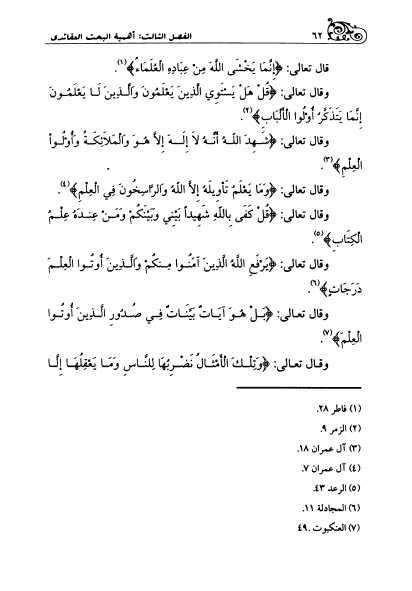 ٦٢ الفصل الثالث: أهمية البحث العقائدي
قال تعالى: ﴿إِنَّمَا يَخْشَى اللَّهَ مِنْ عِبَادِهِ الْعُلَمَاءُ﴾(١).
وقال تعالى: ﴿قُلْ هَلْ يَسْتَوِي الَّذِينَ يَعْلَمُونَ وَالَّذِينَ لَا يَعْلَمُونَ
إِنَّمَا يَتَذَكَّرُ أُوْلُوا الْأَلْبَابِ﴾(٢).
وقال تعالى: ﴿شَهِدَ اللهُ أَنَّهُ لاَ إِلَهَ إِلاَّ هُوَ وَالْمَلاَئِكَةُ وَأُوْلُواْ
الْعِلْمِ﴾(٣).
وقال تعالى: ﴿وَمَا يَعْلَمُ تَأْوِيلَهُ إِلاَّ اللَّهُ وَالرَّاسِخُونَ فِي الْعِلْمِ﴾(٤).
وقال تعالى: ﴿قُلْ كَفَى بِاللَّهِ شَهِيداً بَيْنِي وَبَيْنَكُمْ وَمَنْ عِنْدَهُ عِلْمُ
الْكِتَابِ﴾(٥).
وقال تعالى: ﴿يَرْفَعِ اللَّهُ الَّذِينَ آمَنُوا مِنكُمْ وَالَّذِينَ أُوتُوا الْعِلْمَ
دَرَجَاتٍ﴾(٦).
وقال تعالى: ﴿بَلْ هُوَ آيَاتٌ بَيِّنَاتٌ فِي صُدُورِ الَّذِينَ أُوتُوا
الْعِلْمَ﴾(٧).
وقال تعالى: ﴿وَتِلْكَ الْأَمْثَالُ نَضْرِبُهَا لِلنَّاسِ وَمَا يَعْقِلُهَا إِلَّا
(١) فاطر ٢٨.
(٢) الزمر ٩.
(٣) آل عمران ١٨.
(٤) آل عمران ٧.
(٥) الرعد ٤٣.
(٦) المجادلة ١١.
(٧) العنكبوت ٤٩.